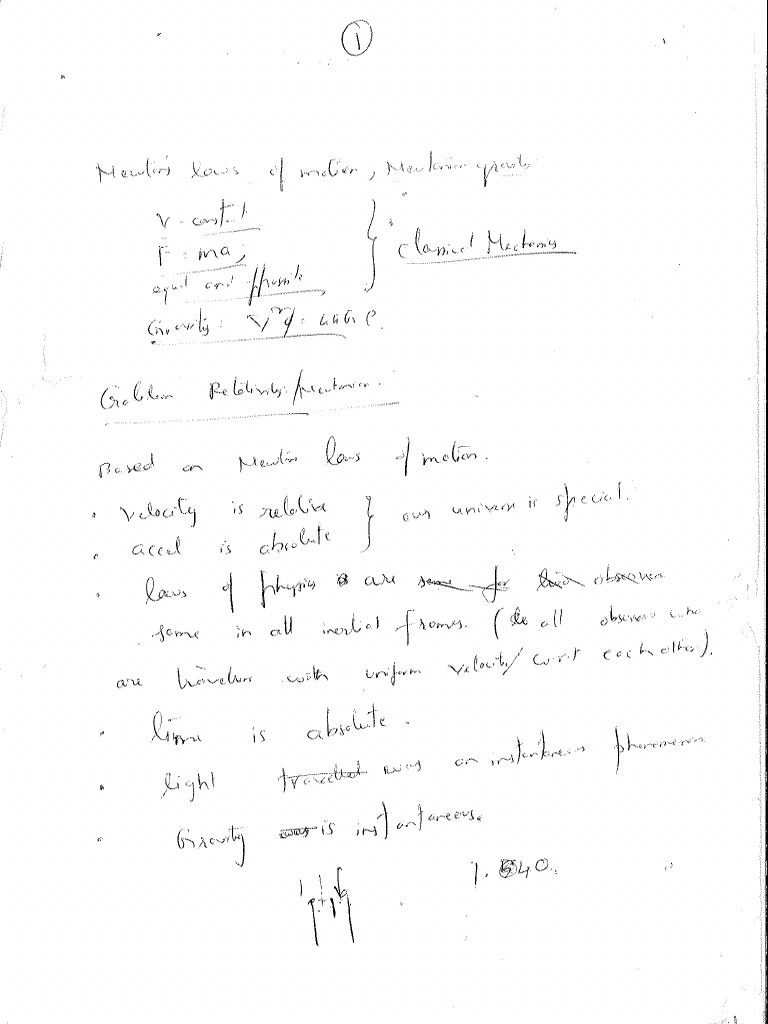 1
Newton's laws of motion, Newtonian gravity
V = const.
F = ma,
equal and opposite
Classical Mechanics
Gravity: ∇²φ = 4πG ρ.
Galilean Relativity/Newtonian.
Based on Newtons laws of motion.
• Velocity is relative
• accel is absolute
our universe is special.
• laws of physics are same for observer
same in all inertial frames. (to all observers who
are travelling with uniform velocity/ w.r.t each other).
• time is absolute.
• light travelled was an instantaneous phenomenon
• Gravity was is instantaneous.
1.540.